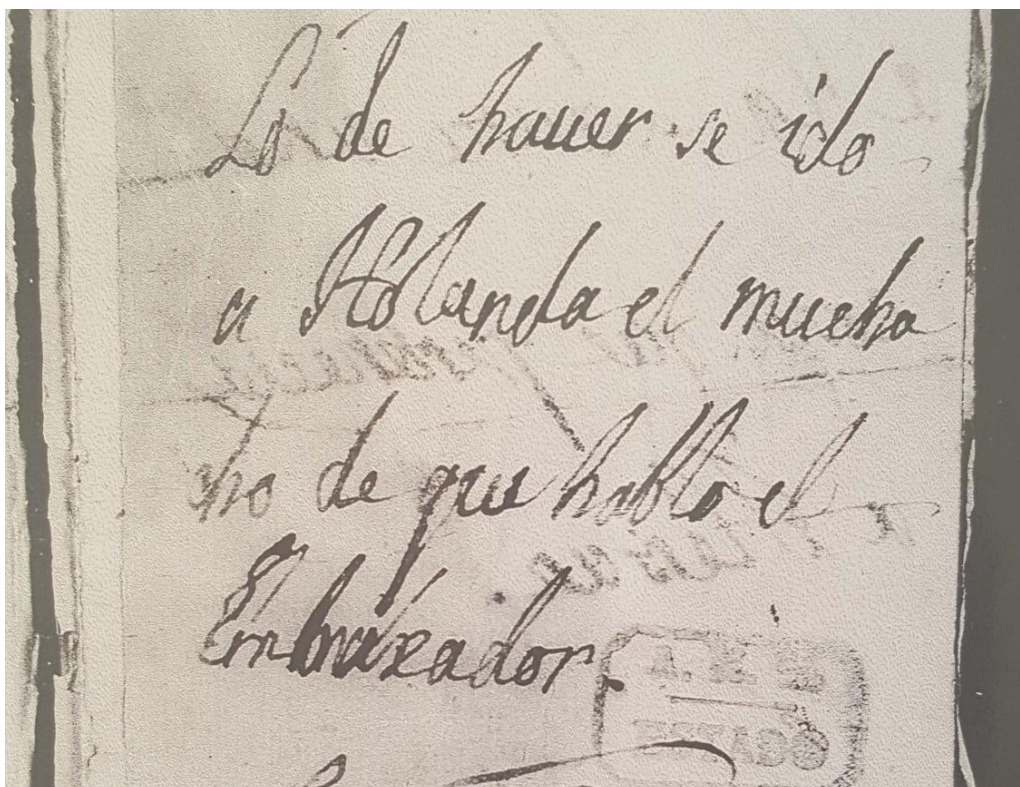 Lo de hauer se ido
a Holanda el mucha
cho de que hablo el
Embaxador.